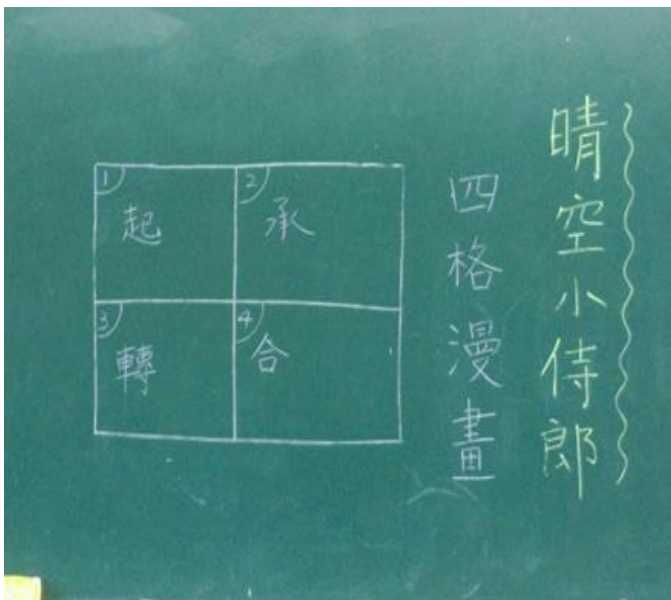 晴空小侍郎
四格漫畫
1 起
2 承
3 轉
4 合